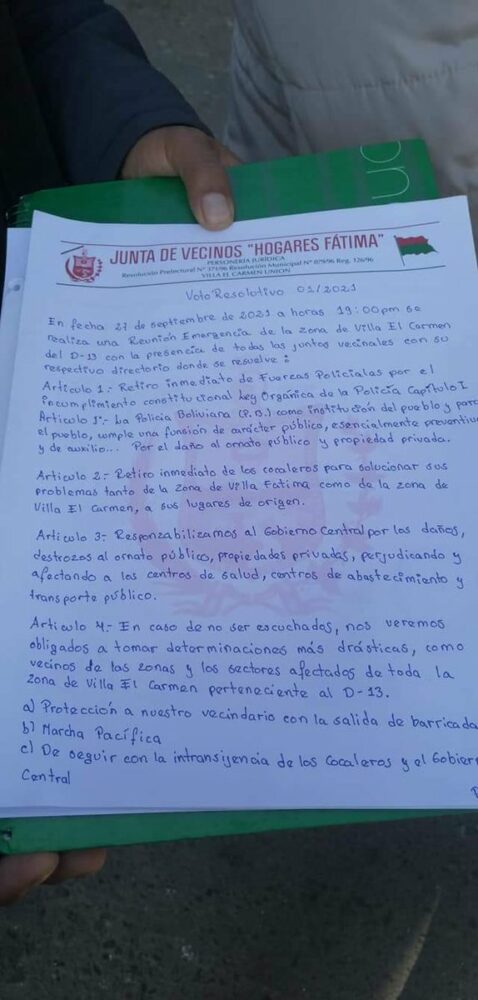 JUNTA DE VECINOS "HOGARES FÁTIMA"
PERSONERÍA JURÍDICA
Resolución Prefectural Nº 371/96 Resolución Municipal Nº 079/96 Reg. 126/96
VILLA EL CARMEN UNION
Voto Resolotivo 01/2021
En fecha 27 de septiembre de 2021 a horas 19:00pm se
realiza una Reunión Emergencia de la zona de Villa El Carmen
del D-13 con la presencia de todas las juntas vecinales con su
respectivo directorio donde se resuelve:
Articulo 1.- Retiro inmediato de Fuerzas Policiales por el
incumplimiento constitucional Ley Orgánica de la Policía Capítulo I
Articulo 1º.- La Policia Boliviana (P.B.) como institución del pueblo y para
el pueblo, cumple una función de carácter público, esencialmente preventiva
y de auxilio... Por el daño al ornato público y propiedad privada.
Articulo 2.- Retiro inmediato de los cocaleros para solucionar sus
problemas tanto de la zona de Villa Fatima como de la zona de
Villa El Carmen, a sus lugares de origen.
Articulo 3.- Responzabilizamos al Gobierno Central por los daños,
destrozos al ornato público, propiedades privadas, perjudicando y
afectando a los centros de salud, centros de abastecimiento y
transporte público.
Articulo 4.- En caso de no ser escuchados, nos veremos
obligados a tomar determinaciones más drásticas, como
vecinos de las zonas y los sectores afectados de toda la
zona de Villa El Carmen perteneciente al D-13.
a) Protección a nuestro vecindario con la salida de barricada
b) Marcha Pacífica
c) De seguir con la intransijencia de los Cocaleros y el Gobiern
Central